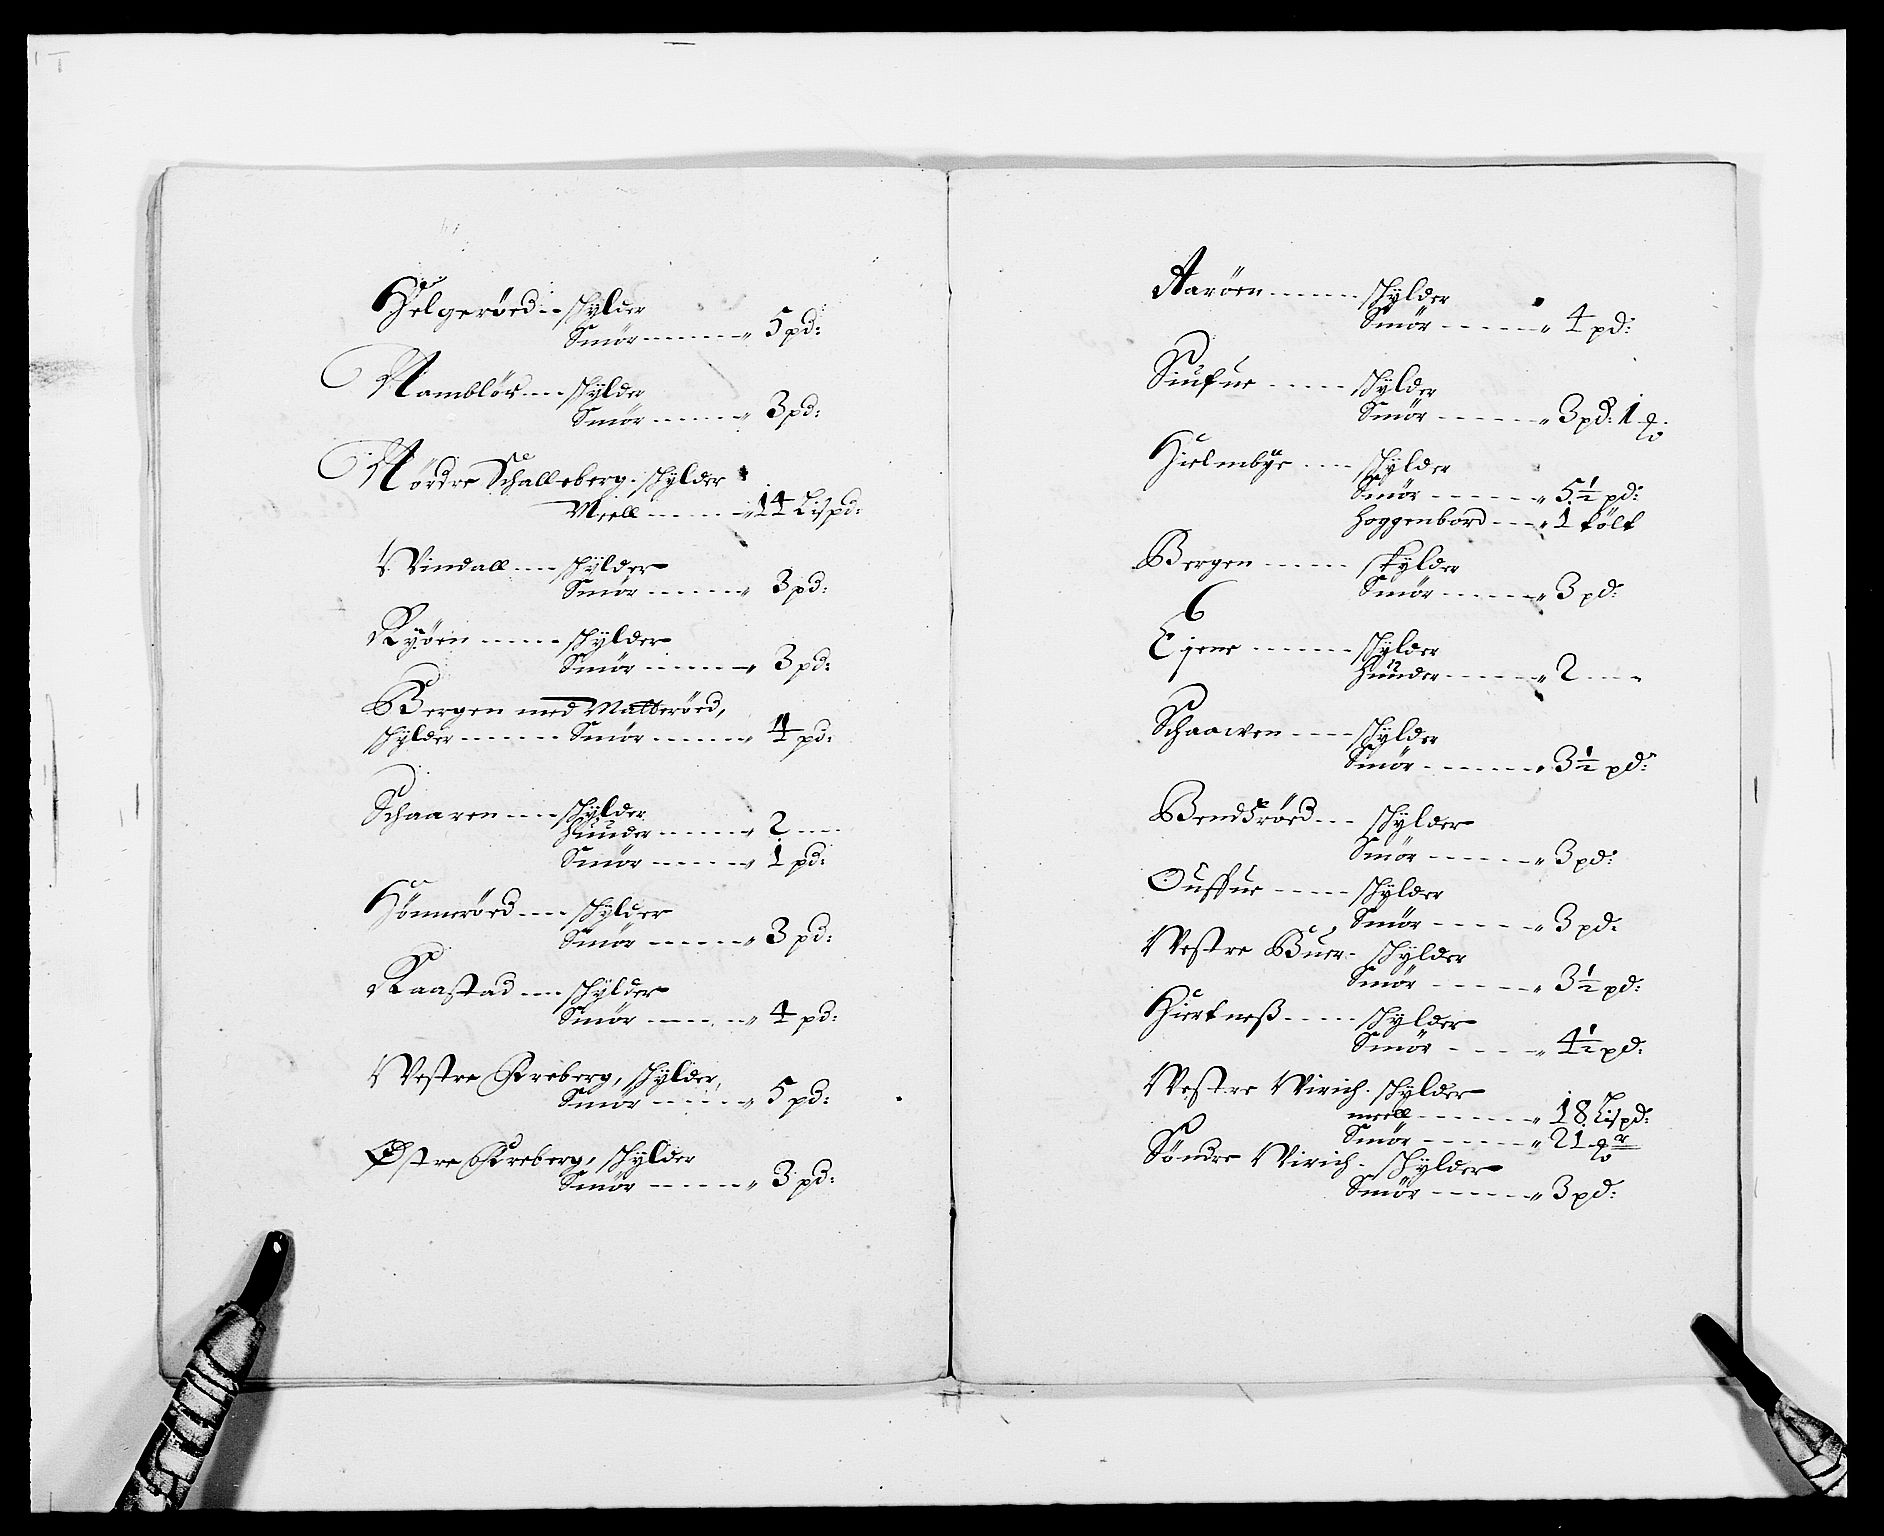 Helgerøed -- schylder
Smör ------ „ 5 pd:
Nambløs --- schylder
Smör ------ „ 3 pd:
Nördre Schalleberg. schylder
Meell ------ „ 14 Lispd:
Windall ---- schylder
Smör ------ „ 3 pd:
Ryöen ----- schylder
Smör ------ „ 3 pd:
Bergen med Matteröed,
schylder ------ Smör ------ „ 4 pd:
Schaaren ---- schylder
Huuder ------ „ 2 ----
Smör ------ „ 1 pd:
Hönneröed ---- schylder
Smör ------ „ 3 pd:
Raastad ---- schylder
Smör ------ „ 4 pd:
Westre schylder,
Smör ------ „ 5 pd:
Østre schylder
Smör ------ „ 3 pd:
Aaröen ------ schylder
Smör ------ „ 4 pd:
schylder
Smör ------ „ 3 pd: 1
Hielmbÿe ---- schylder
Smör ------ „ 5½ pd:
Hoggenbord --- „ 1 tölt
Bergen ------ skylder
Smör ------ „ 3 pd:
Ejene ------ schylder
Hüuder ------ „ 2 ----
Schaawen ---- schylder
Smör ------ „ 3½ pd:
Bendsröed --- schylder
Smör ------ „ 3 pd:
schylder
Smör ------ „ 3 pd:
Westre Buer - schylder
Smör ------ „ 3½ pd:
Hiertneß ----- schylder
Smör ---- „ 4½ pd:
Westre Wirich - schylder
meell ------ „ 18 Lispd:
Smör ------ „ 21
Søndre Wirich - schylder
Smör ------ „ 3 pd: